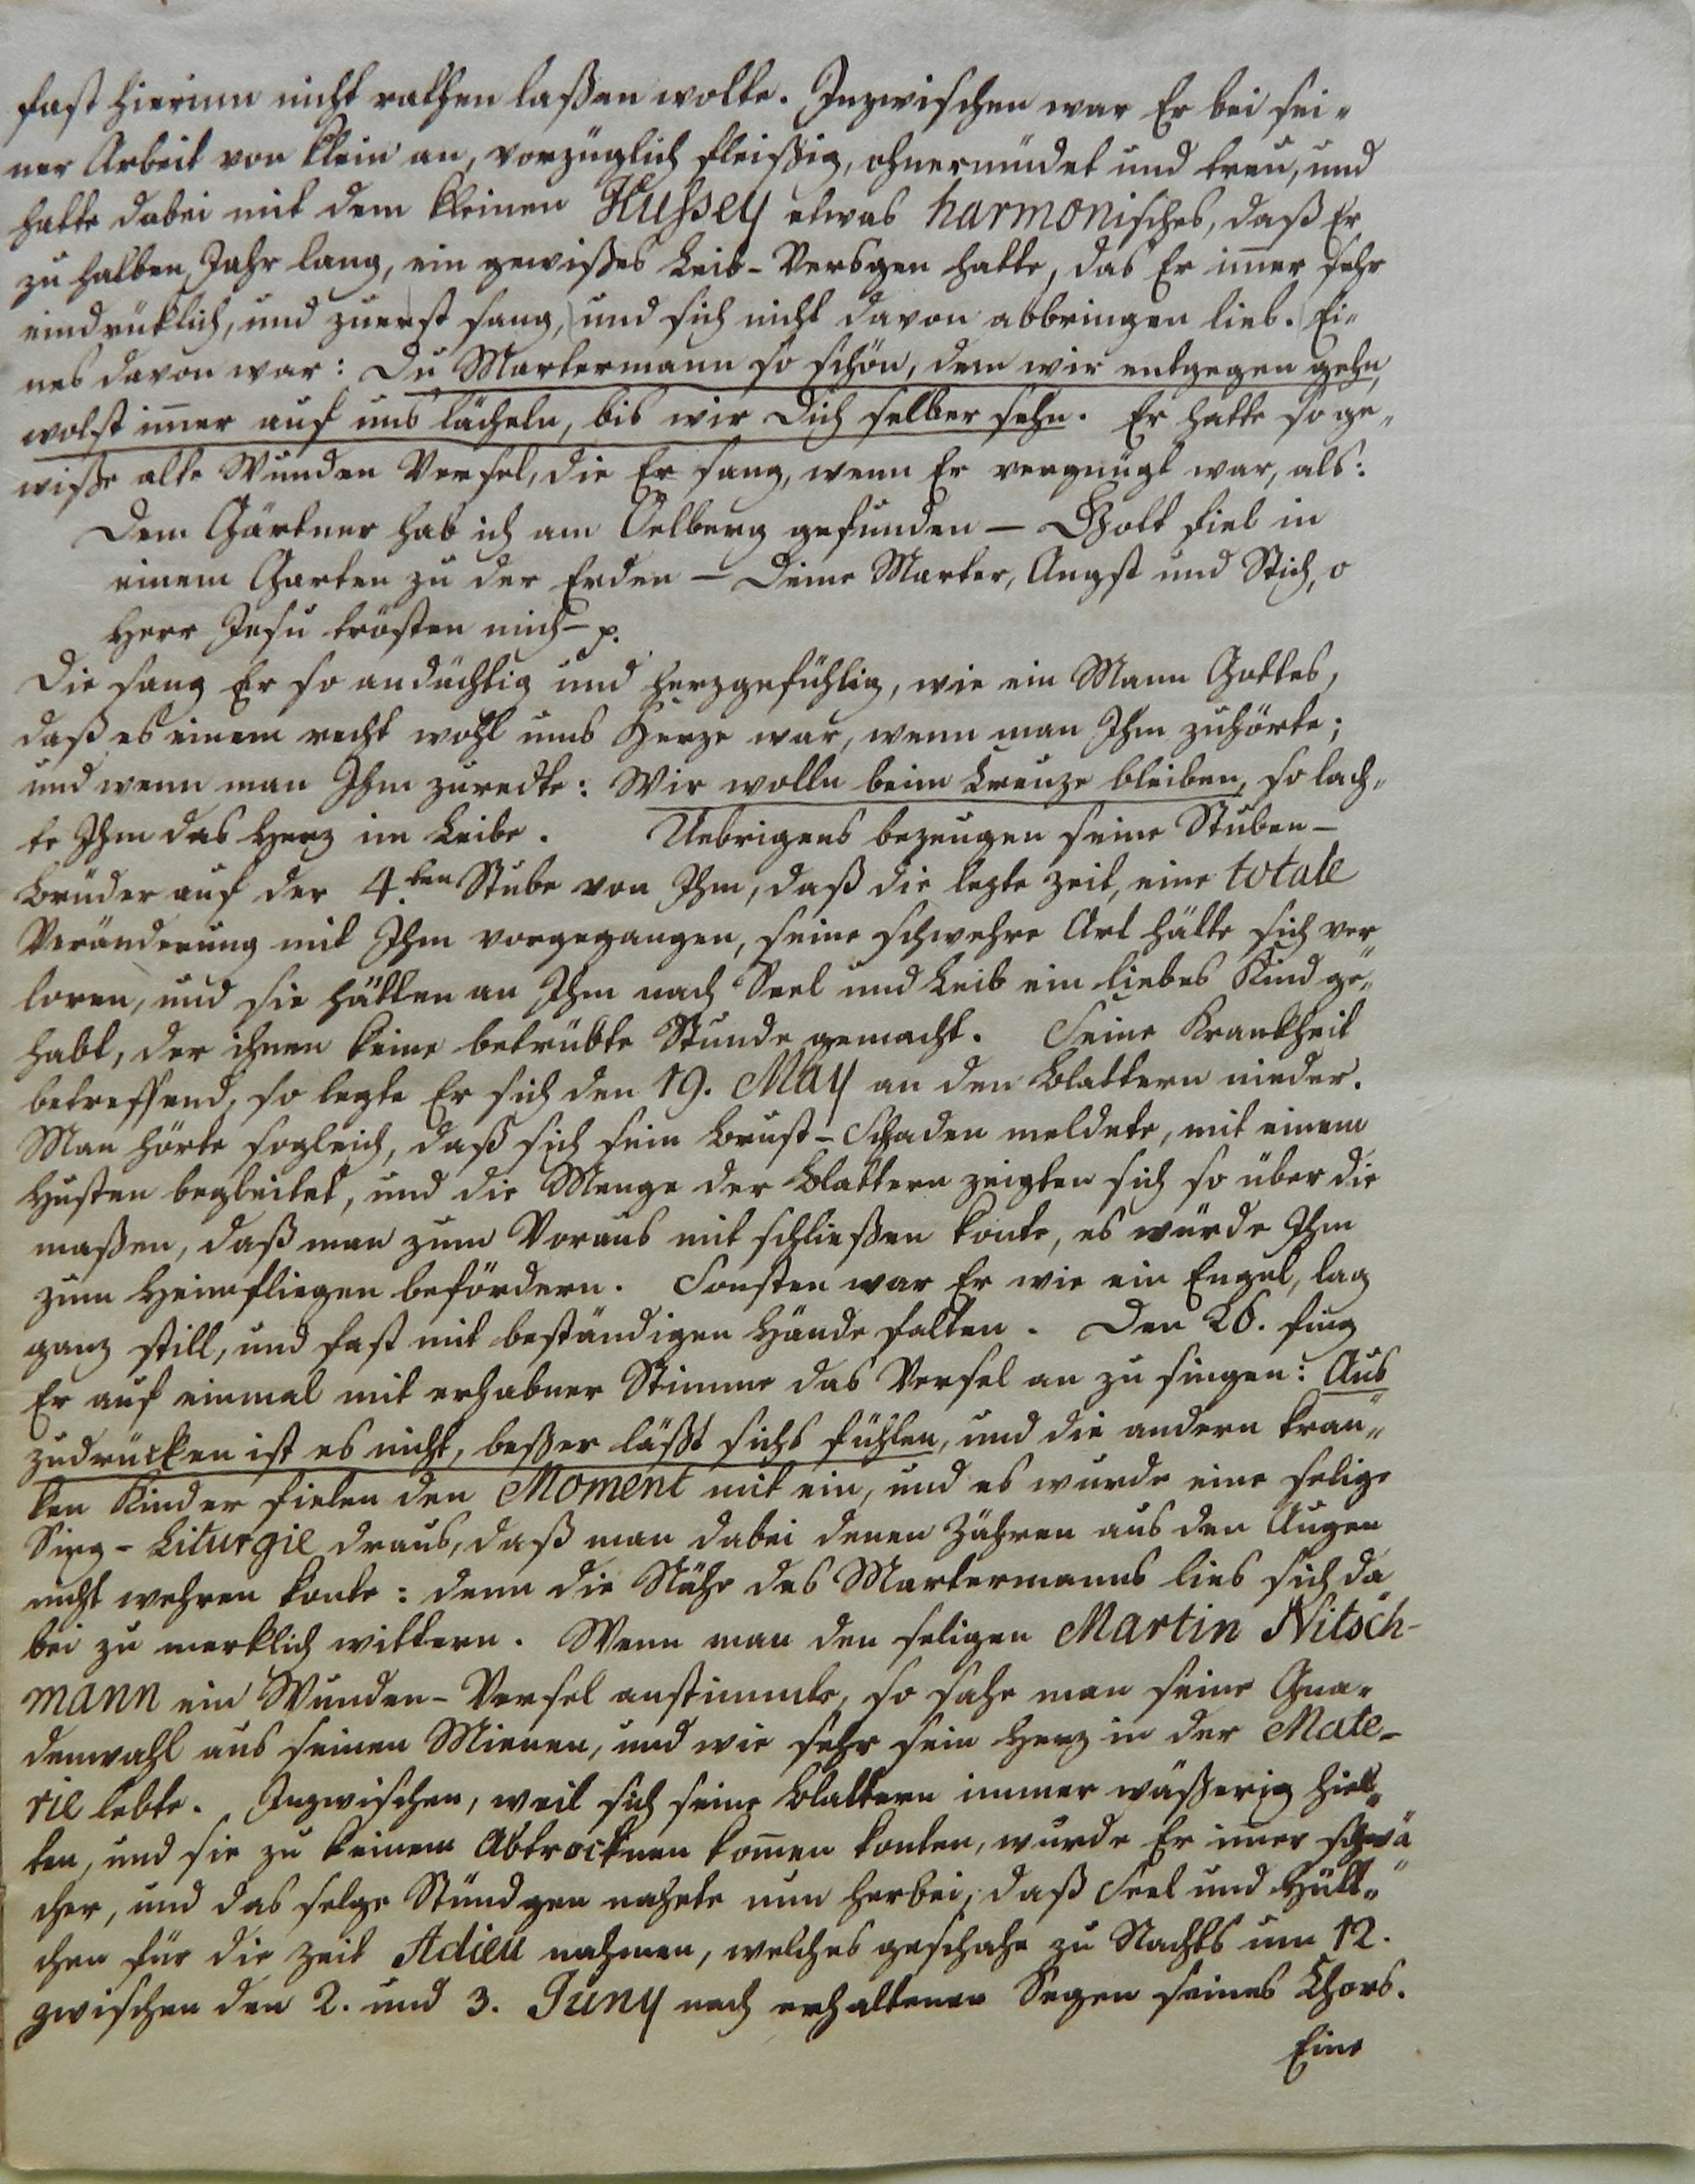 fast hierinn nicht rathen laßen wolte. Inzwischen war Er bei sei-
ner Arbeit von klein an, vorzüglich fleißig, ohnermüdet und treu, und
hatte dabei mit dem kleinen Hußey etwas harmonisches, daß Er
zu halben Jahr lang, ein gewißes Leib-Versgen hatte, das Er im̅er sehr
eindrüklich, und zuerst sang, und sich nicht davon abbringen lies. Ei-
nes davon war: Du Martermann so schön, dem wir entgegen gehn,
wolst im̅er auf uns lächeln, bis wir Dich selber sehn. Er hatte so ge-
wiße alte Wunden Versel, die Er sang, wenn Er vergnügt war, als:
Dem Gärtner hab ich am Oelberg gefunden – Gott fiel in
einem Garten zu der Erden – Deine Marter, Angst und Stich, o
Herr Jesu trösten mich – p.
Die sang Er so andächtig und herzgefühlig, wie ein Mann Gottes,
daß es einem recht wohl ums Herze war, wenn man Ihm zuhörte;
und wenn man Ihm zuredte: Wir wolln beim Creuze bleiben, so lach-
te Ihm das Herz im Leibe. Uebrigens bezeugen seine Stuben-
Brüder auf der 4.ten Stube von Ihm, daß die lezte Zeit, eine totale
Veränderung mit Ihm vorgegangen, seine schwehre Art hätte sich ver-
loren, und sie hätten an Ihm nach Seel und Leib ein liebes Kind ge-
habt, der ihnen keine betrübte Stunde gemacht. Seine Krankheit
betreffend, so legte Er sich den 19. May an den Blattern nieder.
Man hörte sogleich, daß sich sein Brust-Schaden meldete, mit einem
Husten begleitet, und die Menge der Blattern zeigten sich so über die
maßen, daß man zum Voraus mit schließen konte, es würde Ihm
zum Heimfliegen befördern. Sonsten war Er wie ein Engel, lag
ganz still, und fast mit beständigen Hände falten. Den 26. fing
Er auf einmal mit erhabner Stimme das Versel an zu singen: Aus
zudrücken ist es nicht, beßer läßt sichs fühlen, und die andern kran-
ken Kinder fielen den Moment mit ein, und es wurde eine selige
Sing-Liturgie draus, daß man dabei denen Zähren aus den Augen
nicht wehren konte: denn die Nähe des Martermanns lies sich da
bei zu merklich wittern. Wenn man den seligen Martin Nitsch-
mann ein Wunden-Versel anstimmte, so sahe man seine Gna-
denwahl aus seinen Mienen, und wie sehr sein Herz in der Mate-
rie lebte. Inzwischen, weil sich seine Blattern immer wäßerig hiel-
ten, und sie zu keinem Abtrocknen kom̅en konten, wurde Er im̅er schwä
cher, und das selge Stündgen nahete nun herbei, daß Seel und Hütt-
chen für die Zeit Adieu nahmen, welches geschahe zu Nachts um 12.
zwischen den 2. und 3. Juny nach erhaltenen Segen seines Chors.
Eine